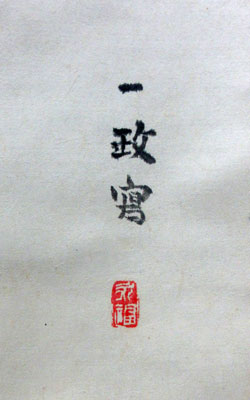 一政寫